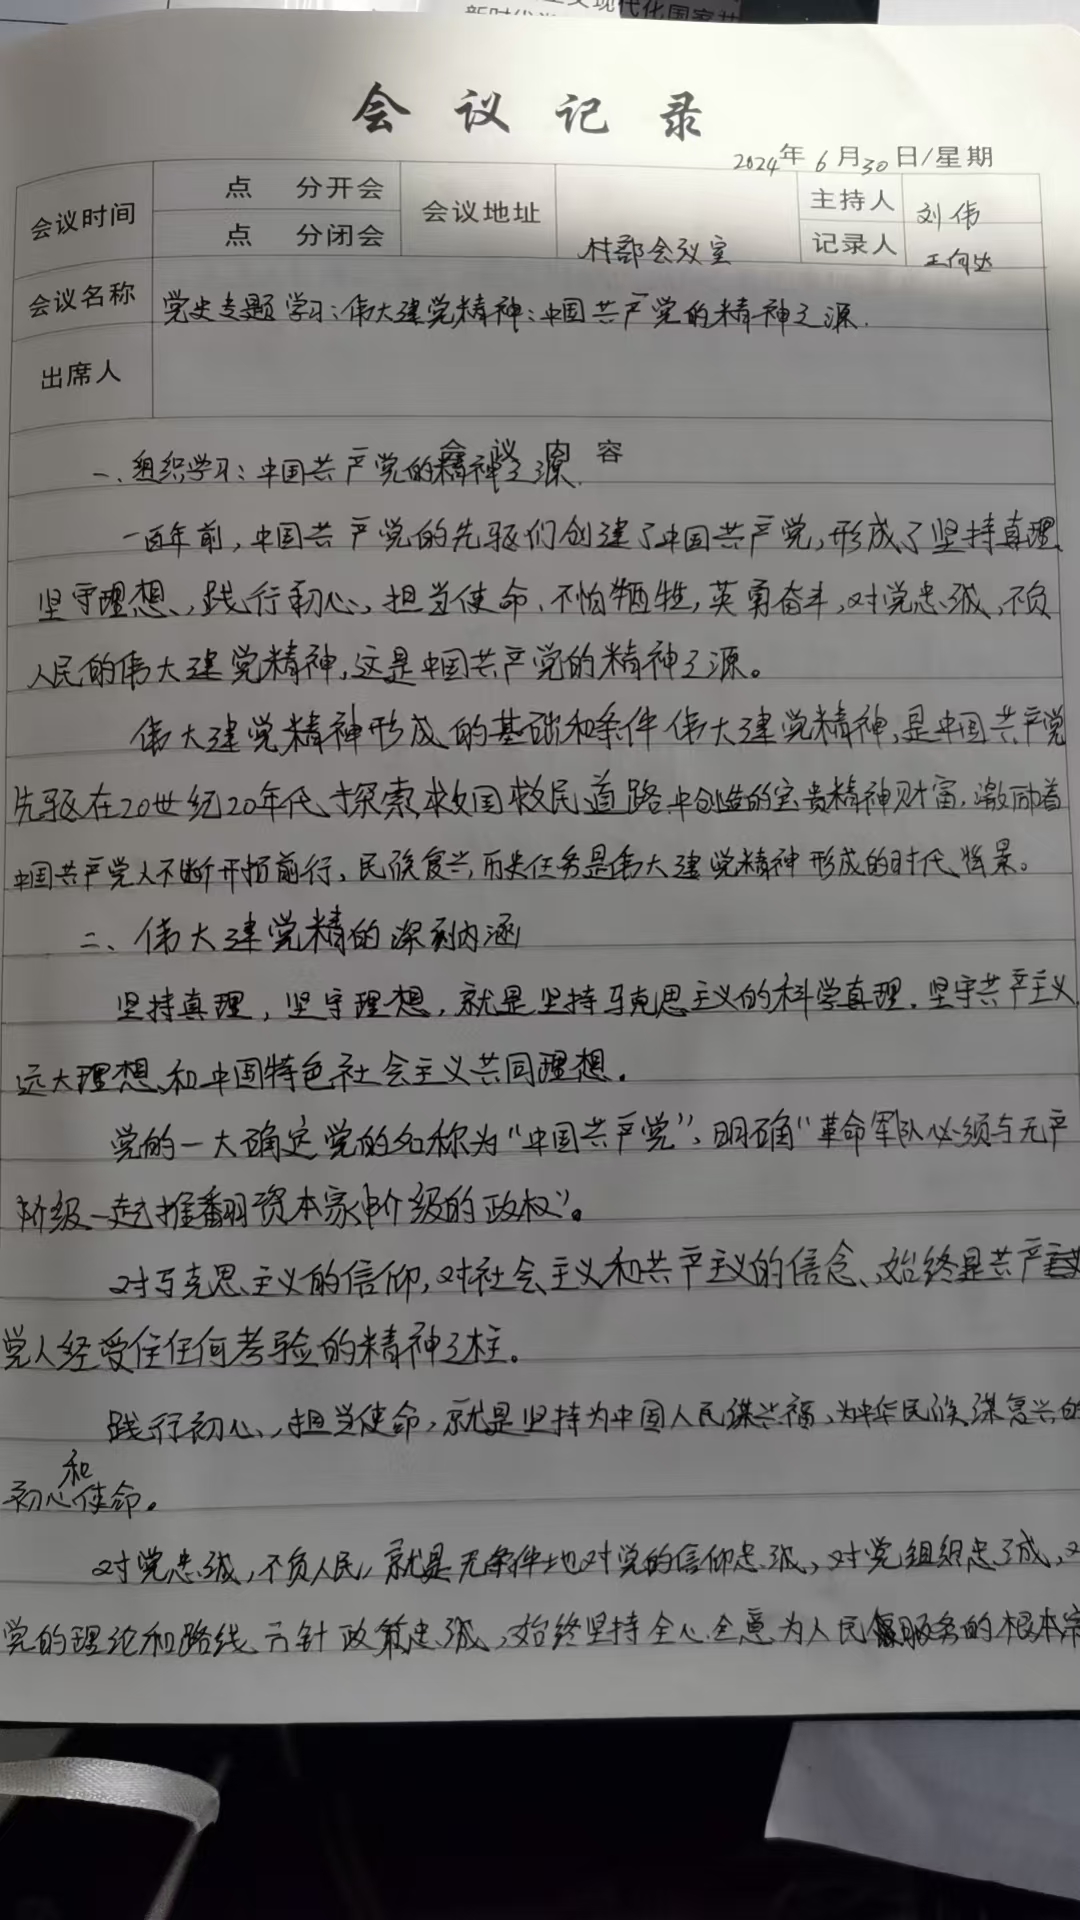 会议记录
2024年6月30日/星期
会议时间 点 分开会 会议地址 村部会议室 主持人 刘伟
点 分闭会 记录人 王向达
会议名称 党史专题学习:伟大建党精神:中国共产党的精神之源.
出席人
会议内容
一、组织学习:中国共产党的精神之源.
一百年前,中国共产党的先驱们创建了中国共产党,形成了坚持真理、
坚守理想、践行初心、担当使命、不怕牺牲,英勇奋斗,对党忠诚、不负
人民的伟大建党精神,这是中国共产党的精神之源。
伟大建党精神形成的基础和条件 伟大建党精神,是中国共产党
先驱在20世纪20年代探索救国救民道路中创造的宝贵精神财富,激励着
中国共产党人不断开拓前行,民族复兴历史任务是伟大建党精神形成的时代背景。
二、伟大建党精的深刻内涵
坚持真理,坚守理想,就是坚持马克思主义的科学真理.坚守共产主义
远大理想和中国特色社会主义共同理想.
党的一大确定党的名称为“中国共产党”,明确“革命军队必须与无产
阶级一起推翻资本家阶级的政权”。
对马克思主义的信仰,对社会主义和共产主义的信念、始终是共产
党人经受住任何考验的精神之柱。
践行初心、担当使命,就是坚持为中国人民谋幸福、为中华民族谋复兴的
初心和使命。
对党忠诚,不负人民,就是无条件地对党的信仰忠诚,对党组织忠诚,
党的理论和路线方针政策忠诚,始终坚持全心全意为人民服务的根本宗